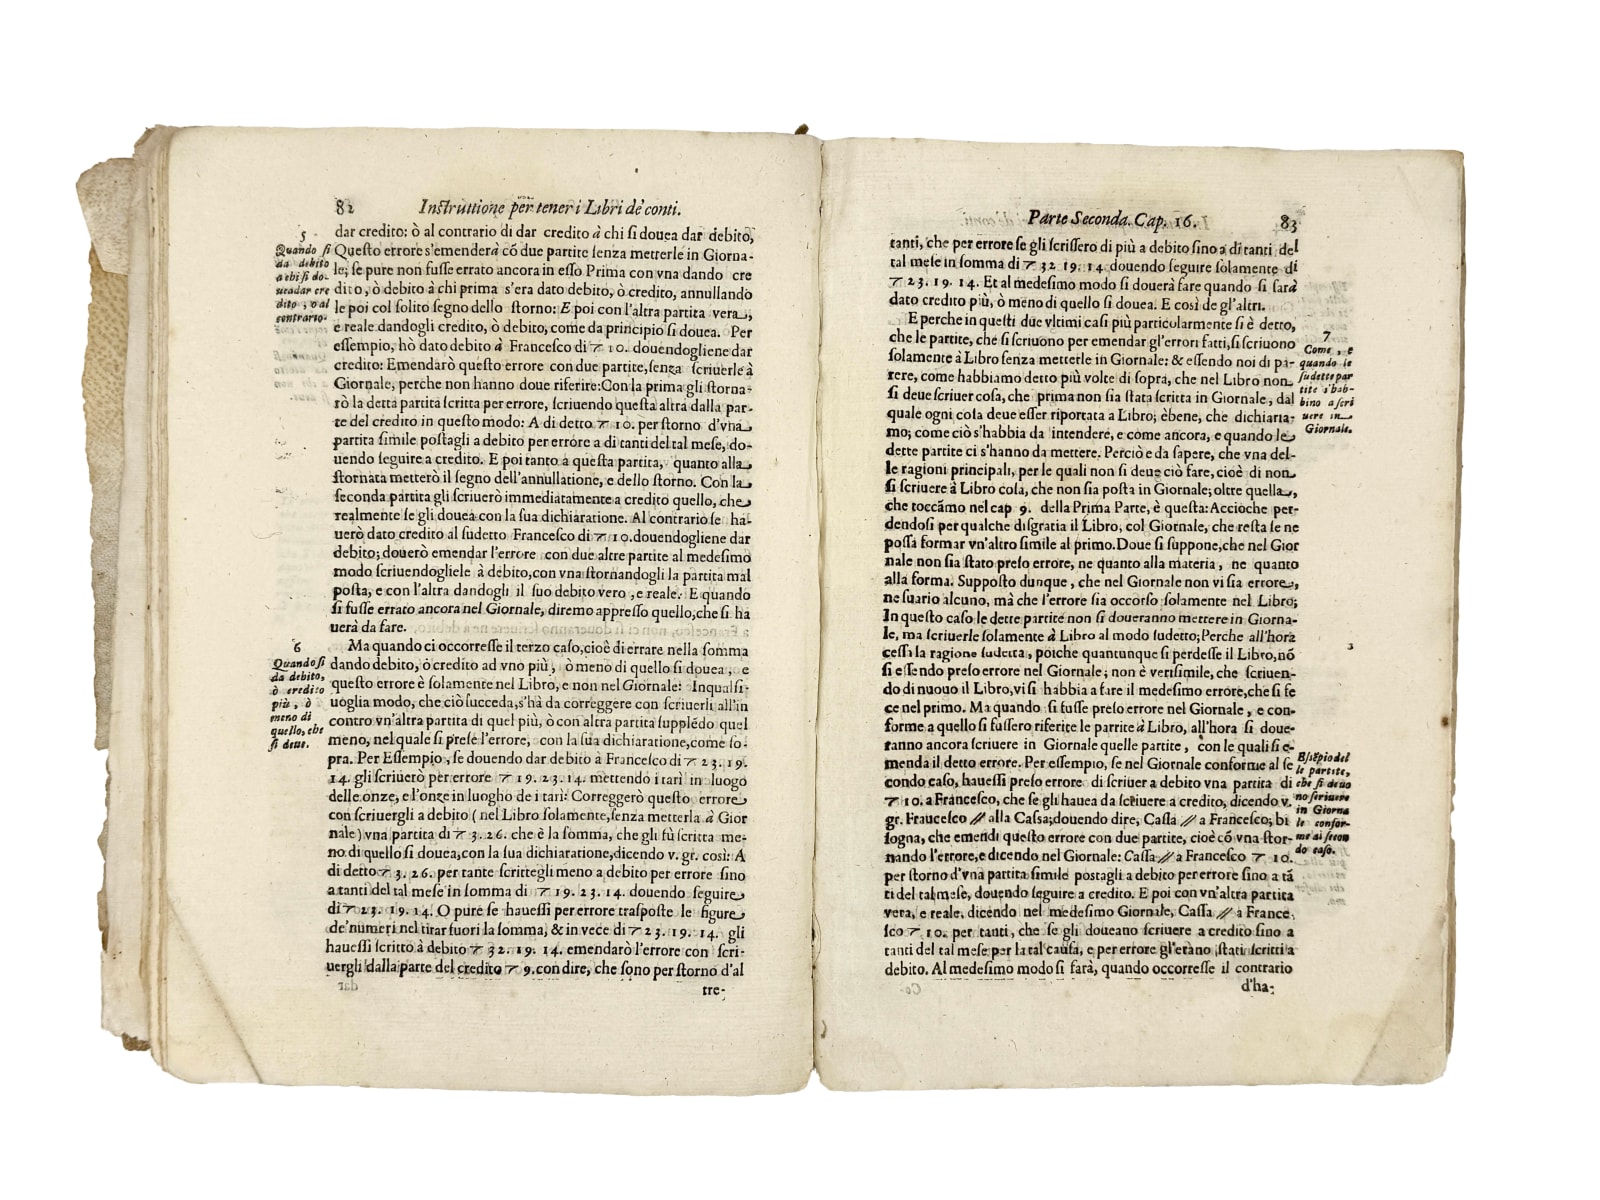 82 Instruttione per tener i Libri de' conti.
5
Quando si
da debito
a chi si do-
uea dar cre
dito, o al
contrario.
dar credito: ò al contrario di dar credito à chi si douea dar debito,
Questo errore s'emenderà cõ due partite senza metterle in Giorna-
le; se pure non fusse errato ancora in esso Prima con vna dando cre
dito, ò debito à chi prima s'era dato debito, ò credito, annullando
le poi col solito segno dello storno: E poi con l'altra partita vera,
e reale dandogli credito, ò debito, come da principio si douea. Per
essempio, hò dato debito à Francesco di 10. douendogliene dar
credito: Emendarò questo errore con due partite, senza scriuerle à
Giornale, perche non hanno doue riferire: Con la prima gli storna-
rò la detta partita scritta per errore, scriuendo questa altra dalla par-
te del credito in questo modo: A di detto 10. per storno d'vna
partita simile postagli a debito per errore a di tanti del tal mese, do-
uendo seguire a credito. E poi tanto a questa partita, quanto alla
stornata metterò il segno dell'annullatione, e dello storno. Con la
seconda partita gli scriuerò immediatamente a credito quello, che
realmente se gli douea con la sua dichiaratione. Al contrario se ha-
uerò dato credito al sudetto Francesco di 10. douendogliene dar
debito; douerò emendar l'errore con due altre partite al medesimo
modo scriuendogliele à debito, con vna stornandogli la partita mal
posta, e con l'altra dandogli il suo debito vero, e reale. E quando
si fusse errato ancora nel Giornale, diremo appresso quello, che si ha
uerà da fare.
6
Quando si
da debito,
ò credito
più, ò
meno di
quello, che
si deue.
Ma quando ci occorresse il terzo caso, cioè di errare nella somma
dando debito, ò credito ad vno più, ò meno di quello si douea, e
questo errore è solamente nel Libro, e non nel Giornale: Inqualsi-
uoglia modo, che ciò succeda, s'hà da correggere con scriuerli all'in
contro vn'altra partita di quel più, ò con altra partita supplẽdo quel
meno, nel quale si prese l'errore, con la sua dichiaratione, come so-
pra. Per Essempio, se douendo dar debito à Francesco di 23. 19.
14. gli scriuerò per errore 19. 23. 14. mettendo i tarì in luogo
delle onze, e l'onze in luogho de i tarì: Correggerò questo errore
con scriuergli a debito (nel Libro solamente, senza metterla à Gior
nale) vna partita di 3. 26. che è la somma, che gli fù scritta me-
no di quello si douea, con la sua dichiaratione, dicendo v. gr. così: A
di detto 3. 26. per tante scrittegli meno a debito per errore sino
a tanti del tal mese in somma di 19. 23. 14. douendo seguire
di 23. 19. 14. O pure se hauessi per errore trasposte le figure
de' numeri nel tirar fuori la somma, & in vece di 23. 19. 14. gli
hauessi scritto à debito 32. 19. 14. emendarò l'errore con scri-
uergli dalla parte del credito 9. con dire, che sono per storno d'al
tre-
Parte Seconda. Cap. 16. 83
tanti, che per errore se gli scrissero di più a debito sino a di tanti del
tal mese in somma di 32 19. 14 douendo seguire solamente di
23. 19. 14. Et al medesimo modo si douerà fare quando si sarà
dato credito più, ò meno di quello si douea. E così de gl'altri.
E perche in questi due vltimi casi più particolarmente si è detto,
che le partite, che si scriuono per emendar gl'errori fatti, si scriuono
solamente à Libro senza metterle in Giornale: & essendo noi di pa-
rere, come habbiamo detto più volte di sopra, che nel Libro non
si deue scriuer cosa, che prima non sia stata scritta in Giornale, dal
quale ogni cosa deue esser riportata a Libro; è bene, che dichiaria-
mo; come ciò s'habbia da intendere, e come ancora, e quando le
dette partite ci s'hanno da mettere. Perciò e da sapere, che vna del-
le ragioni principali, per le quali non si deue ciò fare, cioè di non
si scriuere à Libro cosa, che non sia posta in Giornale; oltre quella,
che toccãmo nel cap 9. della Prima Parte, è questa: Accioche per-
dendosi per qualche disgratia il Libro, col Giornale, che resta se ne
possa formar vn'altro simile al primo. Doue si suppone, che nel Gior
nale non sia stato preso errore, ne quanto alla materia, ne quanto
alla forma. Supposto dunque, che nel Giornale non vi sia errore,
ne suario alcuno, mà che l'errore sia occorso solamente nel Libro;
In questo caso le dette partite non si doueranno mettere in Giorna-
le, ma scriuerle solamente à Libro al modo sudetto; Perche all'hora
cessa la ragione sudetta, poiche quantunque si perdesse il Libro, nõ
si essendo preso errore nel Giornale; non è verisimile, che scriuen-
do di nuouo il Libro, vi si habbia a fare il medesimo errore, che si fe
ce nel primo. Ma quando si fusse preso errore nel Giornale, e con-
forme a quello si fussero riferite le parrite à Libro, all'hora si doue-
ranno ancora scriuere in Giornale quelle partite, con le quali si e-
menda il detto errore. Per essempio, se nel Giornale conforme al se
condo caso, hauessi preso errore di scriuer a debito vna partita di
10. a Francesco, che se gli hauea da scriuere a credito, dicendo v.
gr. Fraucesco // alla Cassa; douendo dire, Cassa // a Francesco; bi
sogna, che emendi questo errore con due partite, cioè cõ vna stor-
nando l'errore, e dicendo nel Giornale: Cassa // a Francesco 10.
per storno d'vna partita simile postagli a debito per errore sino a tã
ti del tal mese, douendo seguire a credito. E poi con vn'altra partita
vera, e reale, dicendo nel medesimo Giornale, Cassa // a France-
sco 10. per tanti, che se gli doueano scriuere a credito sino a
tanti del tal mese per la tal causa, e per errore gl'erano stati scritti a
debito. Al medesimo modo si farà, quando occorresse il contrario
d'ha-
7
Come, e
quando le
sudette par
tite s'hab-
bino a scri
uere in
Giornale.
Essẽpio del
le partite,
che si deuo
no scriuere
in Giorna
le confor-
me al secon
do caso.